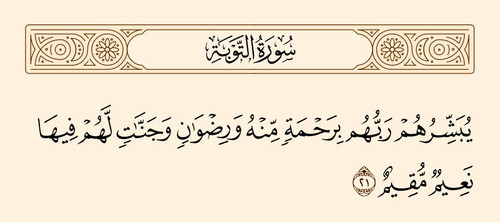 سُورَةُ التَّوۡبَةِ
يُبَشِّرُهُمۡ رَبُّهُم بِرَحۡمَةٖ مِّنۡهُ وَرِضۡوَٰنٖ وَجَنَّٰتٖ لَّهُمۡ فِيهَا
نَعِيمٞ مُّقِيمٌ ٢١